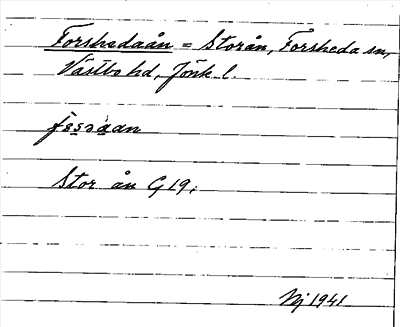 Forshedaån = Storån, Forsheda sn,
Västbo hd, Jönk l.
Stor ån G19;
Nj 1941